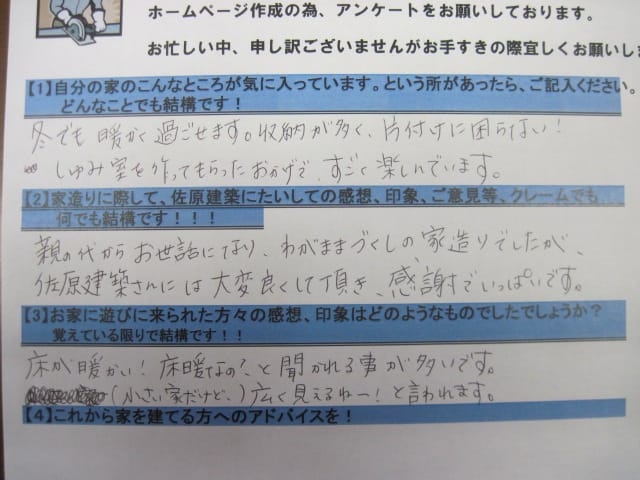 ホームページ作成の為、アンケートをお願いしております。
お忙しい中、申し訳ございませんがお手すきの際宜しくお願いしま
【1】自分の家のこんなところが気に入っています。という所があったら、ご記入ください。
どんなことでも結構です！
冬でも暖かく過ごせます。収納が多く、片付けに困らない！
しゅみ室を作ってもらったおかげで、すごく楽しんでいます。
【2】家造りに際して、佐原建築にたいしての感想、印象、ご意見等、クレームでも
何でも結構です！！！
親の代からお世話になり、わがままづくしの家造りでしたが、
佐原建築さんには大変良くして頂き、感謝でいっぱいです。
【3】お家に遊びに来られた方々の感想、印象はどのようなものでしたでしょうか？
覚えている限りで結構です！！
床が暖かい！床暖なの？と聞かれる事が多いです。
（小さい家だけど、）広く見えるねー！と言われます。
【4】これから家を建てる方へのアドバイスを！